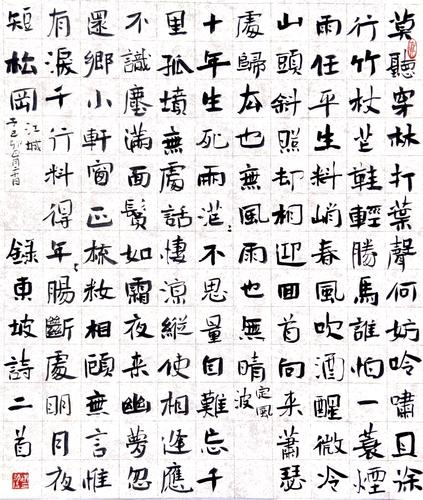 莫聽穿林打葉聲何妨吟嘯且徐
行竹杖芒鞋輕勝馬誰怕一蓑煙
雨任平生料峭春風吹酒醒微冷
山頭斜照却相迎回首向來蕭瑟
處歸去也無風雨也無晴定風波
十年生死兩茫〻不思量自難忘千
里孤墳無處話悽涼縱使相逢應
不識塵滿面鬢如霜夜來幽夢忽
還鄉小軒窗正梳妝相顧無言惟
有淚千行料得年〻腸斷處明月夜
短松岡江城子
錄東坡詩二首